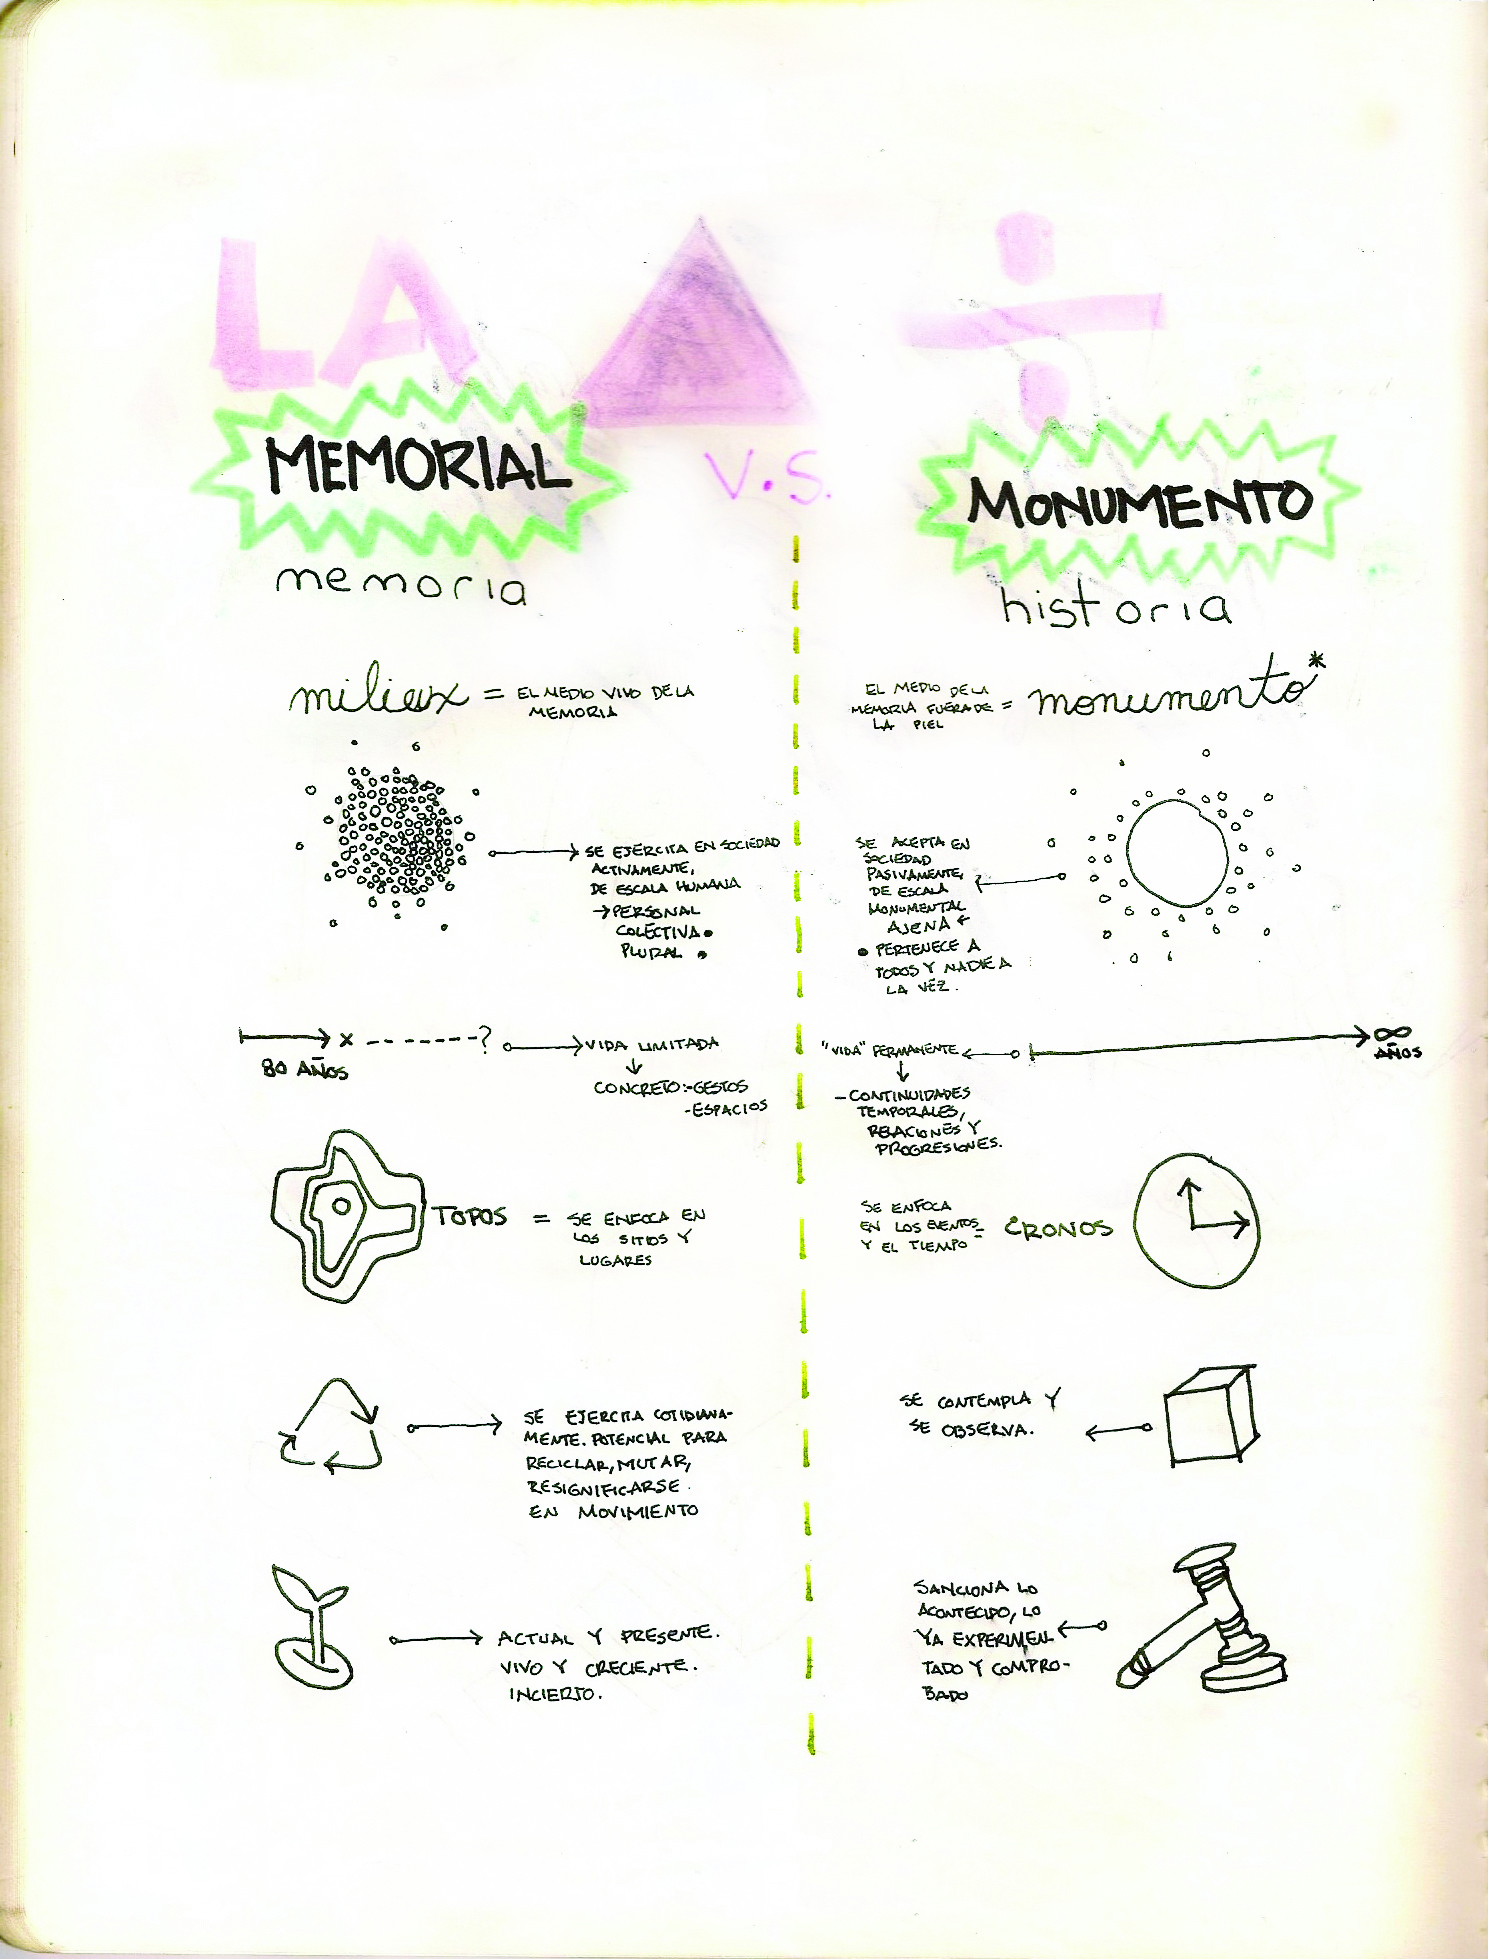 LA
MEMORIAL
V.S.
MONUMENTO
memoria
historia
milieux = EL MEDIO VIVO DE LA
MEMORIA
SE EJERCITA EN SOCIEDAD
ACTIVAMENTE,
DE ESCALA HUMANA
→ PERSONAL
COLECTIVA •
PLURAL •
80 AÑOS
x ------?
VIDA LIMITADA
↓
CONCRETO: -GESTOS
-ESPACIOS
TOPOS = SE ENFOCA EN
LOS SITIOS Y
LUGARES
SE EJERCITA COTIDIANA-
MENTE. POTENCIAL PARA
RECICLAR, MUTAR,
RESIGNIFICARSE.
EN MOVIMIENTO
ACTUAL Y PRESENTE.
VIVO Y CRECIENTE.
INCIERTO.
EL MEDIO DE LA
MEMORIA FUERA DE = monumento*
LA PIEL
SE ACEPTA EN
SOCIEDAD
PASIVAMENTE,
DE ESCALA
MONUMENTAL
AJENA ←
• PERTENECE A
TODOS Y NADIE A
LA VEZ.
"VIDA" PERMANENTE
∞
AÑOS
↓
- CONTINUIDADES
TEMPORALES,
RELACIONES Y
PROGRESIONES.
SE ENFOCA
EN LOS EVENTOS = CRONOS
Y EL TIEMPO
SE CONTEMPLA Y
SE OBSERVA.
SANCIONA LO
ACONTECIDO, LO
YA EXPERIMEN
TADO Y COMPRO-
BADO